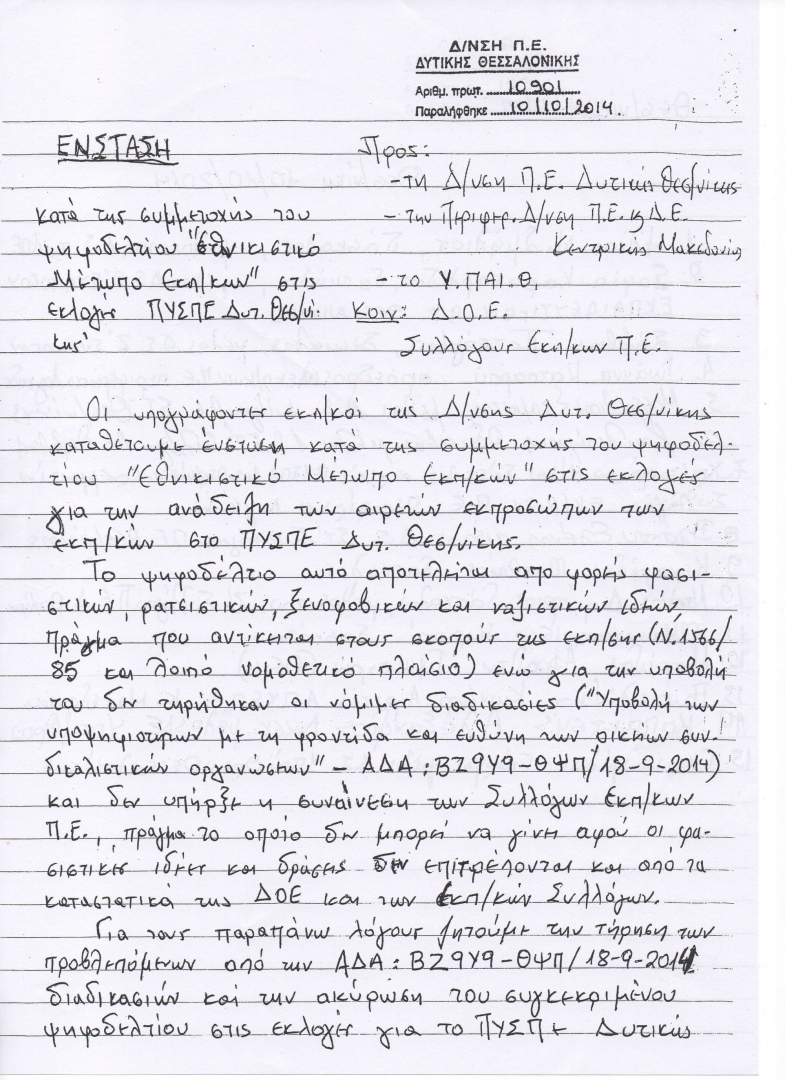 Δ/ΝΣΗ Π.Ε.
ΔΥΤΙΚΗΣ ΘΕΣΣΑΛΟΝΙΚΗΣ
Αριθμ. πρωτ. 10901
Παραλήφθηκε 10/10/2014
ΕΝΣΤΑΣΗ
Προς:
- τη Δ/νση Π.Ε. Δυτικής Θεσ/νίκης
κατά της συμμετοχής του
- την Περιφερ. Δ/νση Π.Ε. & Δ.Ε.
ψηφοδελτίου "Εθνικιστικό
Κεντρικής Μακεδονίας
Μέτωπο Εκπ/κών" στις
- το Υ.ΠΑΙ.Θ.
εκλογές ΠΥΣΠΕ Δυτ. Θεσ/νί-
Κοιν: Δ.Ο.Ε.
κης
Συλλόγους Εκπ/κων Π.Ε.
Οι υπογράφοντες εκπ/κοί της Δ/νσης Δυτ. Θεσ/νίκης
καταθέτουμε ένσταση κατά της συμμετοχής του ψηφοδελ-
τίου "Εθνικιστικό Μέτωπο Εκπ/κών" στις εκλογές
για την ανάδειξη των αιρετών εκπροσώπων των
εκπ/κών στο ΠΥΣΠΕ Δυτ. Θεσ/νίκης.
Το ψηφοδέλτιο αυτό αποτελείται από φορείς φασι-
στικών, ρατσιστικών, ξενοφοβικών και ναζιστικών ιδεών,
πράγμα που αντίκειται στους σκοπούς της εκπ/σης (Ν.1566/
85 και λοιπό νομοθετικό πλαίσιο) ενώ για την υποβολή
του δεν τηρήθηκαν οι νόμιμες διαδικασίες ("Υποβολή των
υποψηφιοτήτων με τη φροντίδα και ευθύνη των οικείων συν-
δικαλιστικών οργανώσεων" - ΑΔΑ: ΒΖ9Υ9-ΘΨΠ/18-9-2014)
και δεν υπήρξε η συναίνεση των Συλλόγων Εκπ/κων
Π.Ε., πράγμα το οποίο δεν μπορεί να γίνει αφού οι φα-
σιστικές ιδέες και δράσεις δεν επιτρέπονται και από τα
καταστατικά της ΔΟΕ και των εκπ/κών Συλλόγων.
Για τους παραπάνω λόγους ζητούμε την τήρηση των
προβλεπόμενων από την ΑΔΑ: ΒΖ9Υ9-ΘΨΠ/18-9-2014
διαδικασιών και την ακύρωση του συγκεκριμένου
ψηφοδελτίου στις εκλογές για το ΠΥΣΠΕ Δυτικής